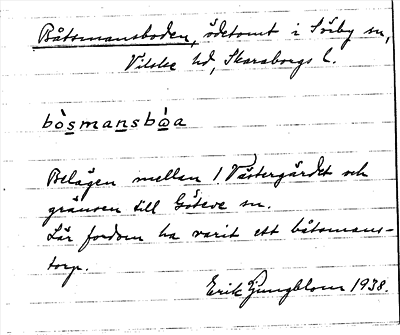 Båtsmansboden, ödetomt i Sörby sn,
Vilske hd, Skaraborgs l.
bò̀smansbɷ̀a
Belägen mellan 1. Västergärdet och
gränsen till Göteve sn.
Lär fordom ha varit ett båtsmans-
torp.
Erik Ljungblom 1938.